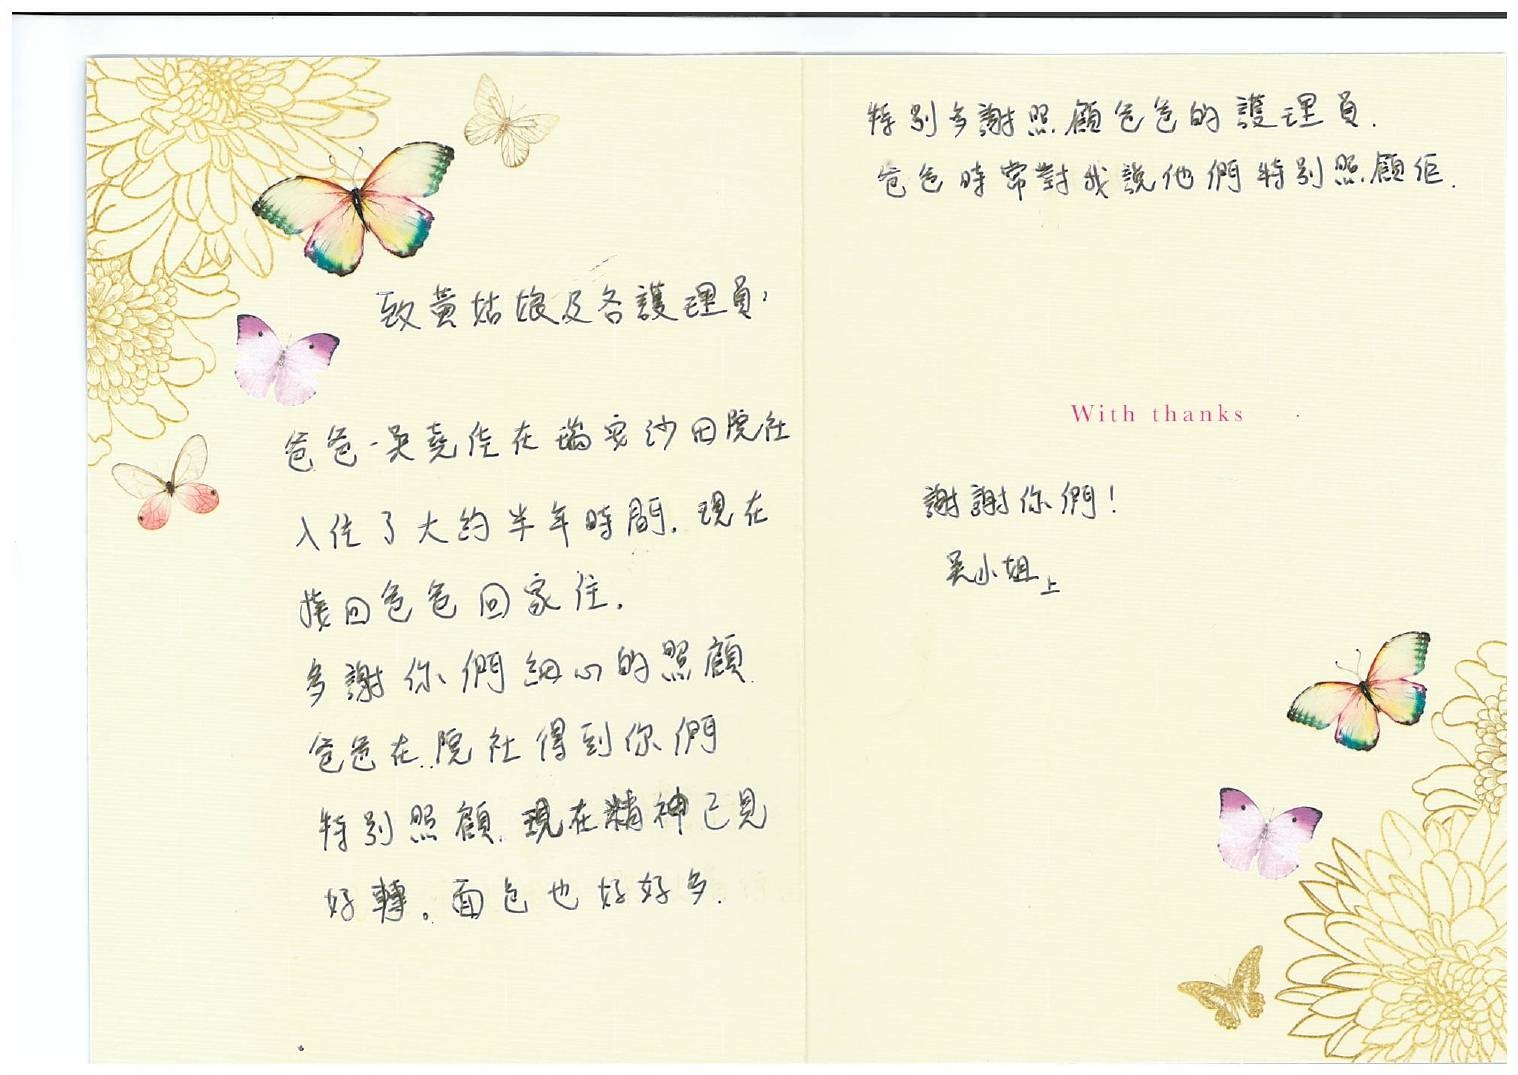 致黃姑娘及各護理員，
爸爸-吳堯佳在瑞安沙田院社
入住了大約半年時間. 現在
接回爸爸回家住.
多謝你們細心的照顧.
爸爸在院社得到你們
特別照顧. 現在精神已見
好轉。面色也好好多.
特別多謝照顧爸爸的護理員.
爸爸時常對我說他們特別照顧佢.
With thanks
謝謝你們!
吳小姐上